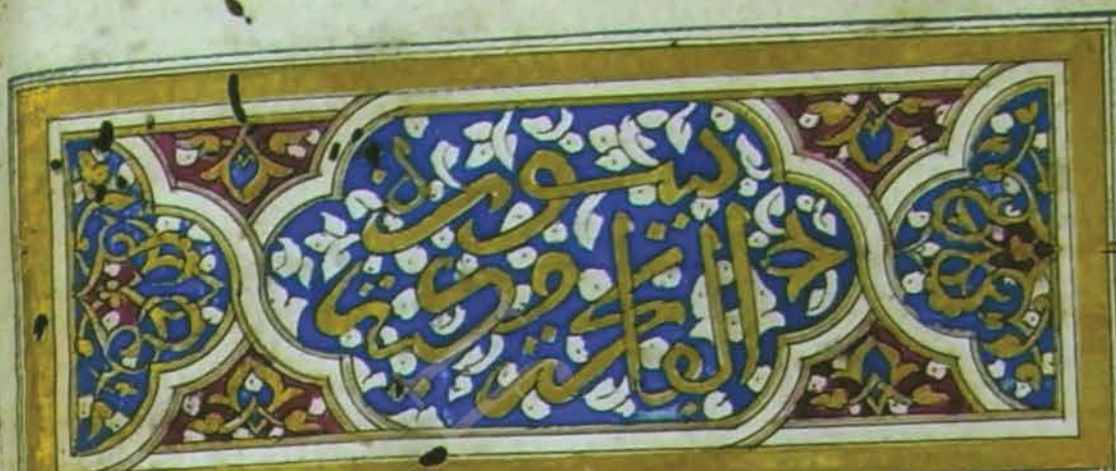 سورة
الفاتحة مكية